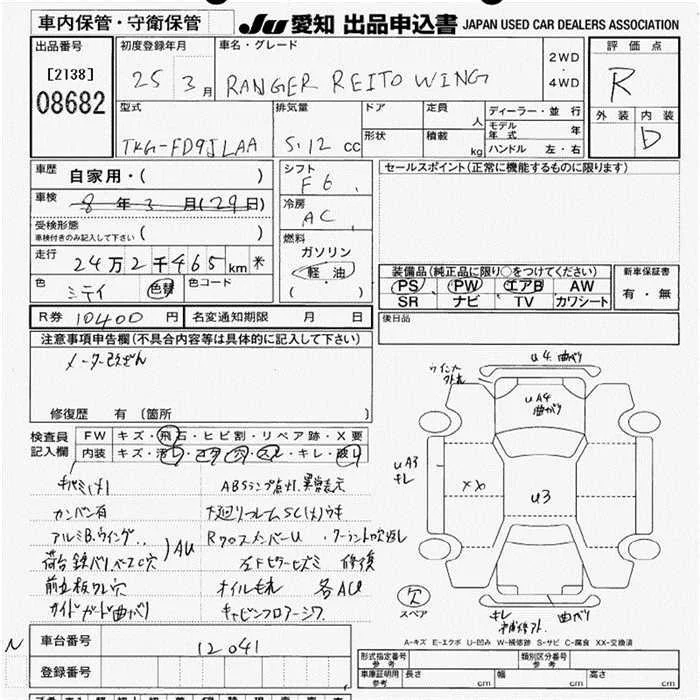 車内保管・守衛保管
JU 愛知 出品申込書 JAPAN USED CAR DEALERS ASSOCIATION
出品番号
[2138]
08682
初度登録年月
25 3月
車名・グレード
RANGER REITO WING
2WD
・
4WD
評価点
R
外装 内装
D
型式
TKG-FD9JLAA
排気量
5.12 cc
ドア
定員
人
形状
積載
kg
ディーラー・並行
モデル年式 年
ハンドル 左・右
車歴
自家用・( )
車検
8年3月(29日)
受検形態
車検付きのみ記入して下さい ( )
走行
24万2千465km ※
色
色替
色コード
シフト
F6
冷房
AC
燃料
ガソリン
軽油
( )
セールスポイント(正常に機能するものに限ります)
装備品(純正品に限り○をつけてください)
PS PW エアB AW
SR ナビ TV カワシート
新車保証書
有・無
後日品
R券 10400 円
名変通知期限 月 日
注意事項申告欄(不具合内容等は具体的に記入して下さい)
メーター改ざん
修復歴 有 (箇所 )
検査員記入欄
FW キズ・飛石・ヒビ割・リペア跡・X要
内装 キズ・汚レ・コゲ・穴・スレ・キレ・破レ
ABSランプ点灯.異常表示
カンバン有
アルミB.ウイング
AU
Rクロスメンバーu
修復
オイルモレ
各ACu
ガイドガード曲がり
キャビンフロアーシワ
u4. 曲がり
uA4
曲がり
uA3
キレ
XX
u3
欠
スペア
キレ
曲がり
A-キズ E-エクボ U-凹み W-補修跡 S-サビ C-腐食 XX-交換済
N
車台番号
12041
登録番号
型式指定番号
参考
類別区分番号
参考
車庫証明用
参考
長さ cm
幅 cm
高さ cm